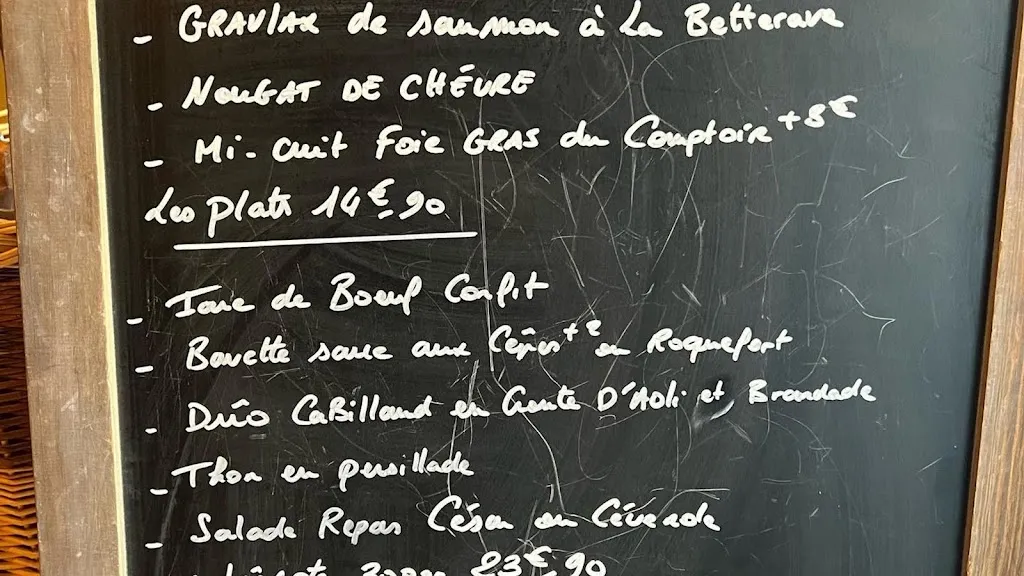 - GRAVLAX de saumon à La Betterave
- NOUGAT DE CHÉVRE
- Mi-cuit Foie GRAS du Comptoir +8€
Les plats 14€90
- Joue de Boeuf Confit
- Bavette sauce aux Cêpes +€ ou Roquefort
- Dûo CaBillaud en Croute D'Aoli et Brandade
- Thon en persillade
- Salade Repas César ou Cévenole
300gr 23€90